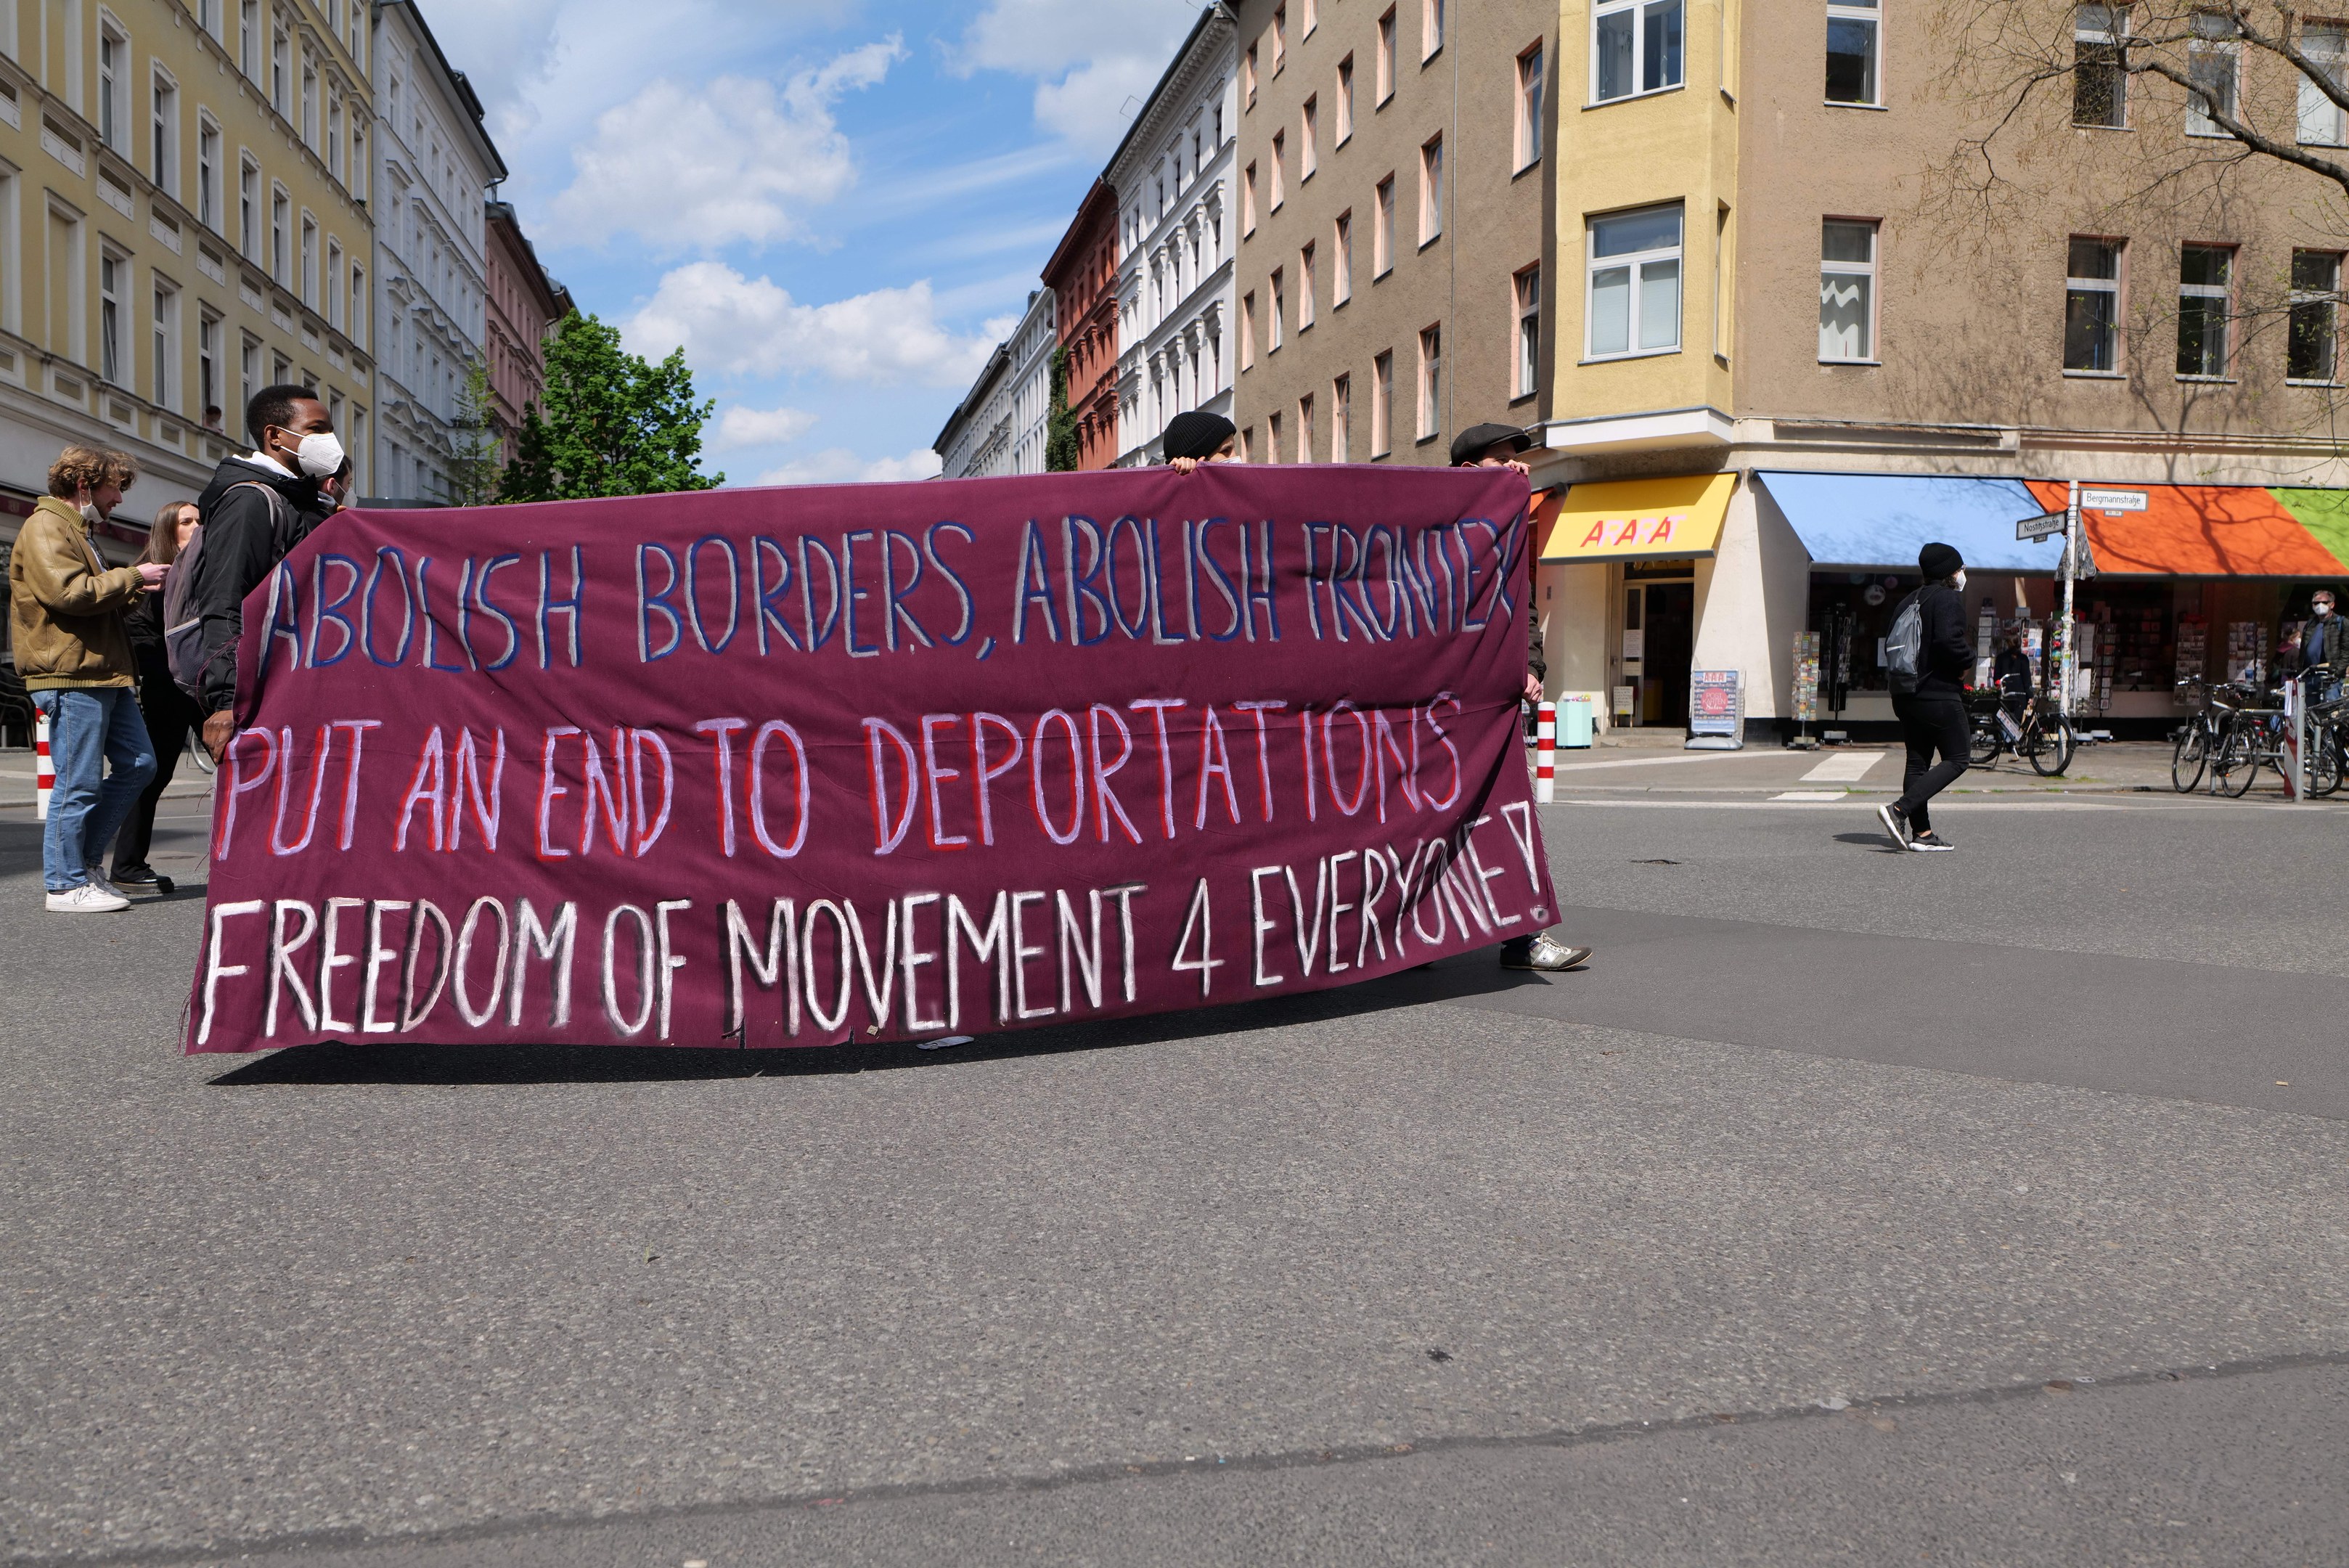 ABOLISH BORDERS, ABOLISH FRONTEX
PUT AN END TO DEPORTATIONS
FREEDOM OF MOVEMENT 4 EVERYONE!
APARAT
Bergmannstraße
Nostitzstraße